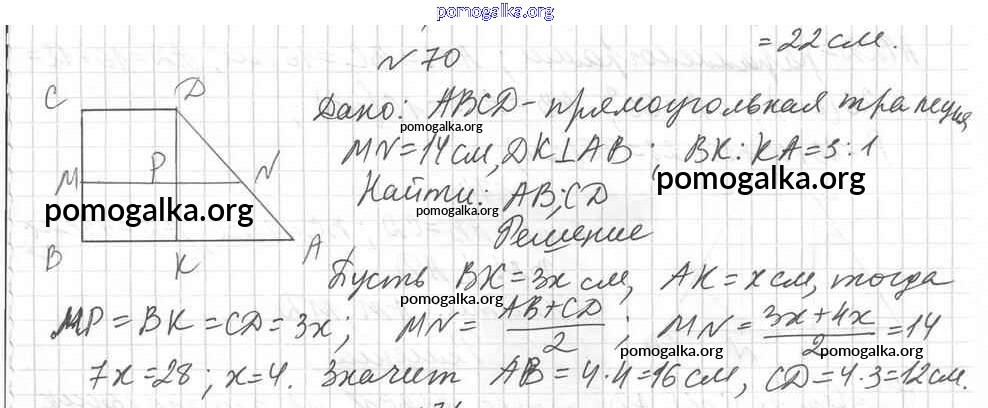 pomogalka.org
= 22 см.
№ 70
C D
Дано: ABCD - прямоугольная трапеция,
pomogalka.org
MN = 14 см, DK ⊥ AB ; BK : KA = 3 : 1
pomogalka.org
M P N
Найти: AB; CD
pomogalka.org
pomogalka.org
Решение
B K A
Пусть BK = 3x см, AK = x см, тогда
pomogalka.org
MP = BK = CD = 3x; MN = (AB + CD)/2 ; MN = (3x + 4x)/2 = 14
pomogalka.org pomogalka.org
7x = 28 ; x = 4. Значит AB = 4 · 4 = 16 см, CD = 4 · 3 = 12 см.